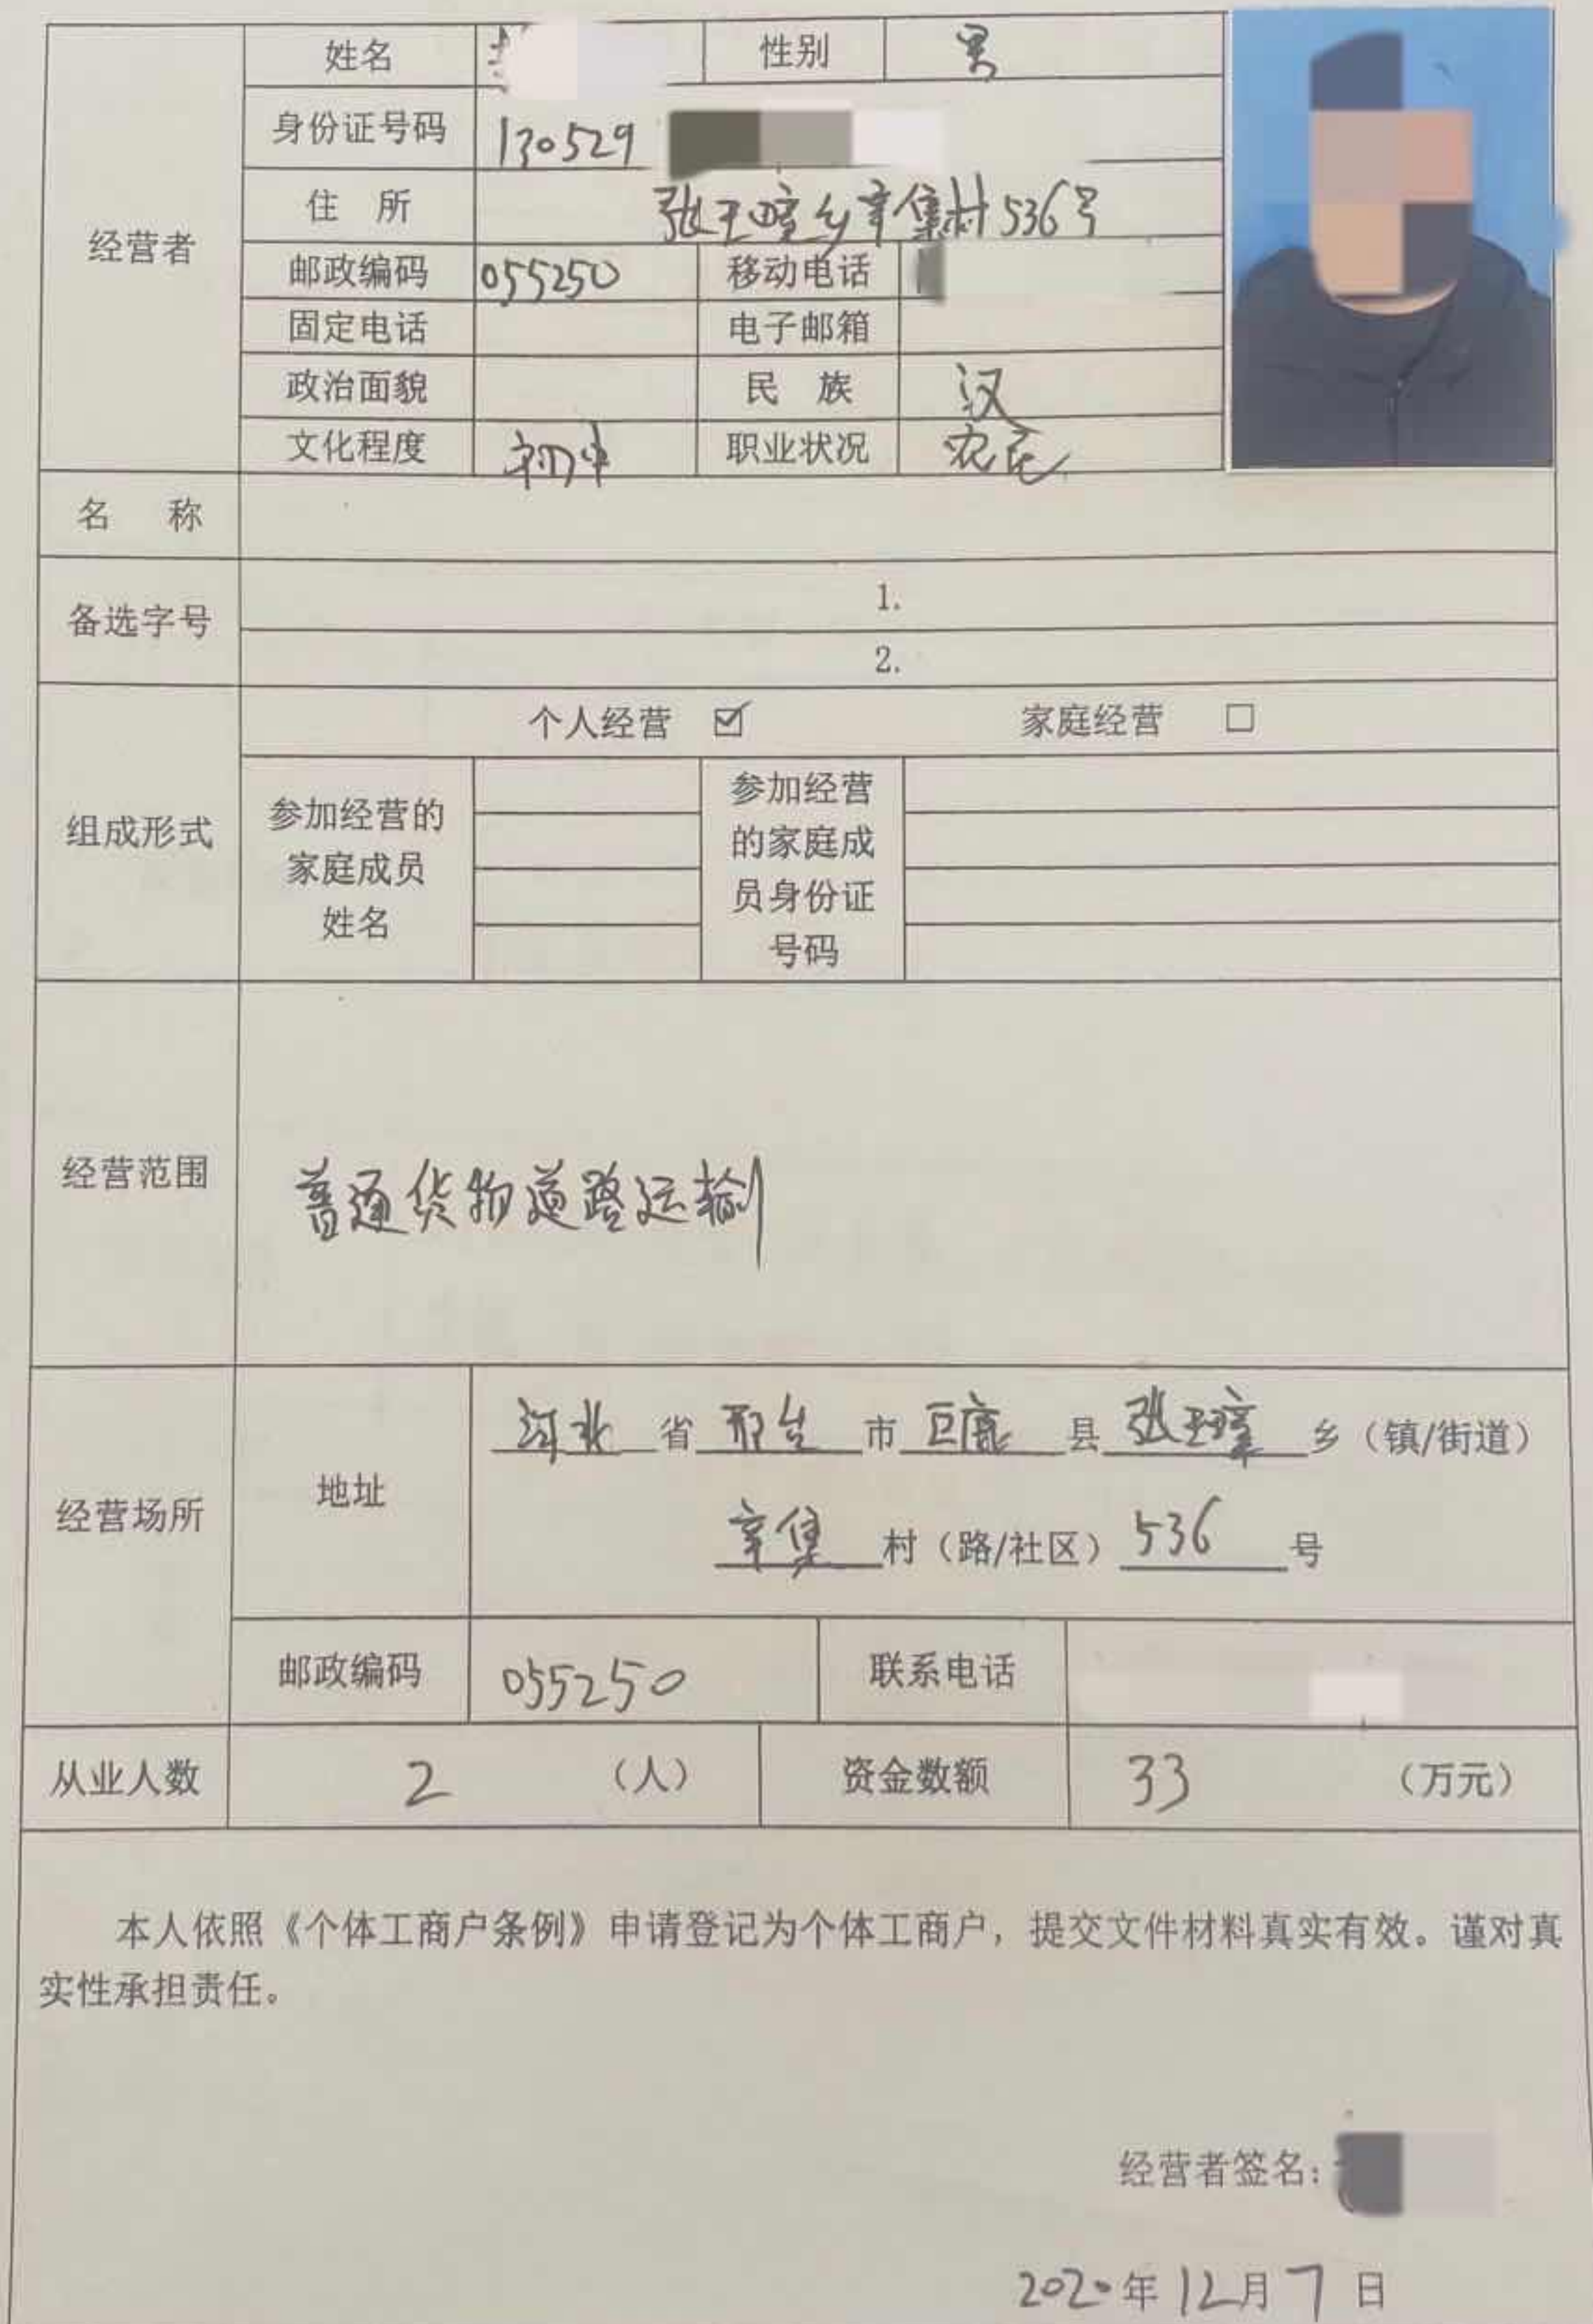 经营者 姓名 性别 男
身份证号码 130529
住 所 张王疃乡辛集村536号
邮政编码 055250 移动电话
固定电话 电子邮箱
政治面貌 民 族 汉
文化程度 初中 职业状况 农民
名 称
备选字号 1.
2.
组成形式 个人经营 ☑ 家庭经营 □
参加经营的家庭成员姓名 参加经营的家庭成员身份证号码
经营范围 普通货物道路运输
经营场所 地址 河北 省 邢台 市 巨鹿 县 张王疃 乡（镇/街道）
辛集 村（路/社区） 536 号
邮政编码 055250 联系电话
从业人数 2 （人） 资金数额 33 （万元）
本人依照《个体工商户条例》申请登记为个体工商户，提交文件材料真实有效。谨对真
实性承担责任。
经营者签名：
2020年12月7日